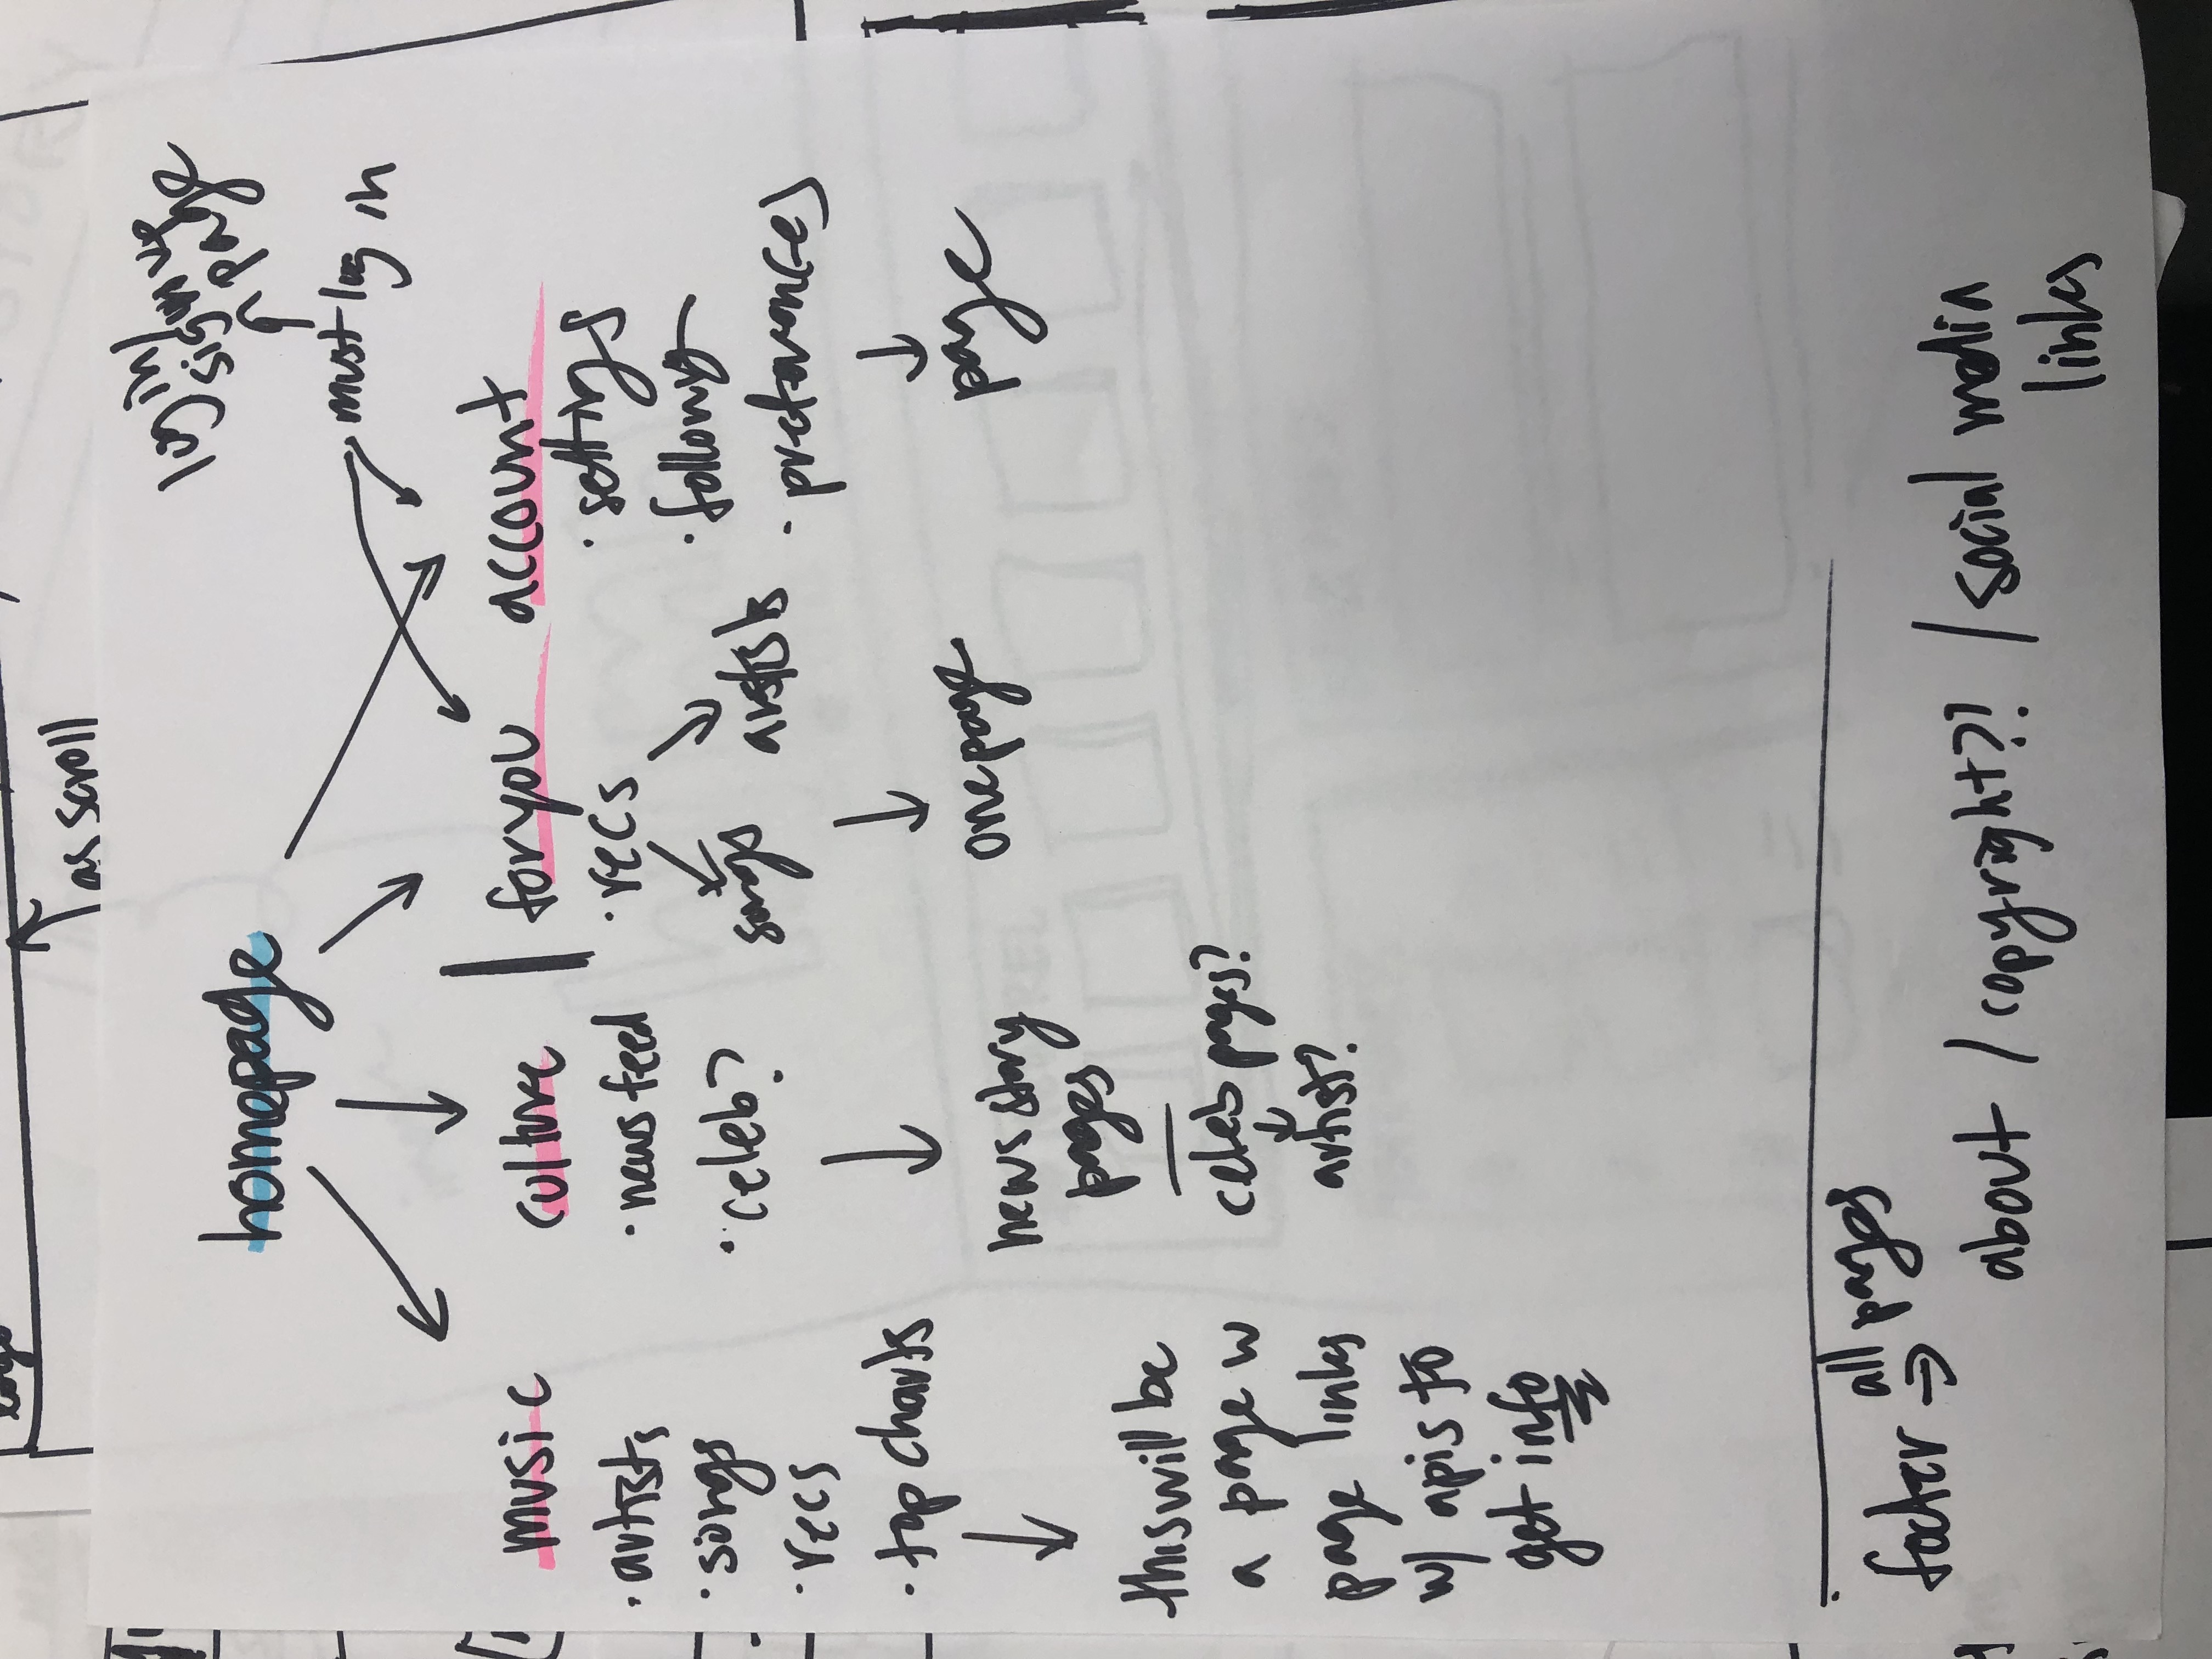 as scroll
login/
signup
page
homepage
must log in
music
· artists
· songs
· recs
· top charts
this will be
a page w
page links
w/ apis to
get info
culture
· news feed
· celeb?
news story
pages
celeb pages?
artist?
for you
· recs
songs
artists
one page
account
· settings
· following
· preferences
page
footer ⇒
all pages
about / copyright?! / social media
links